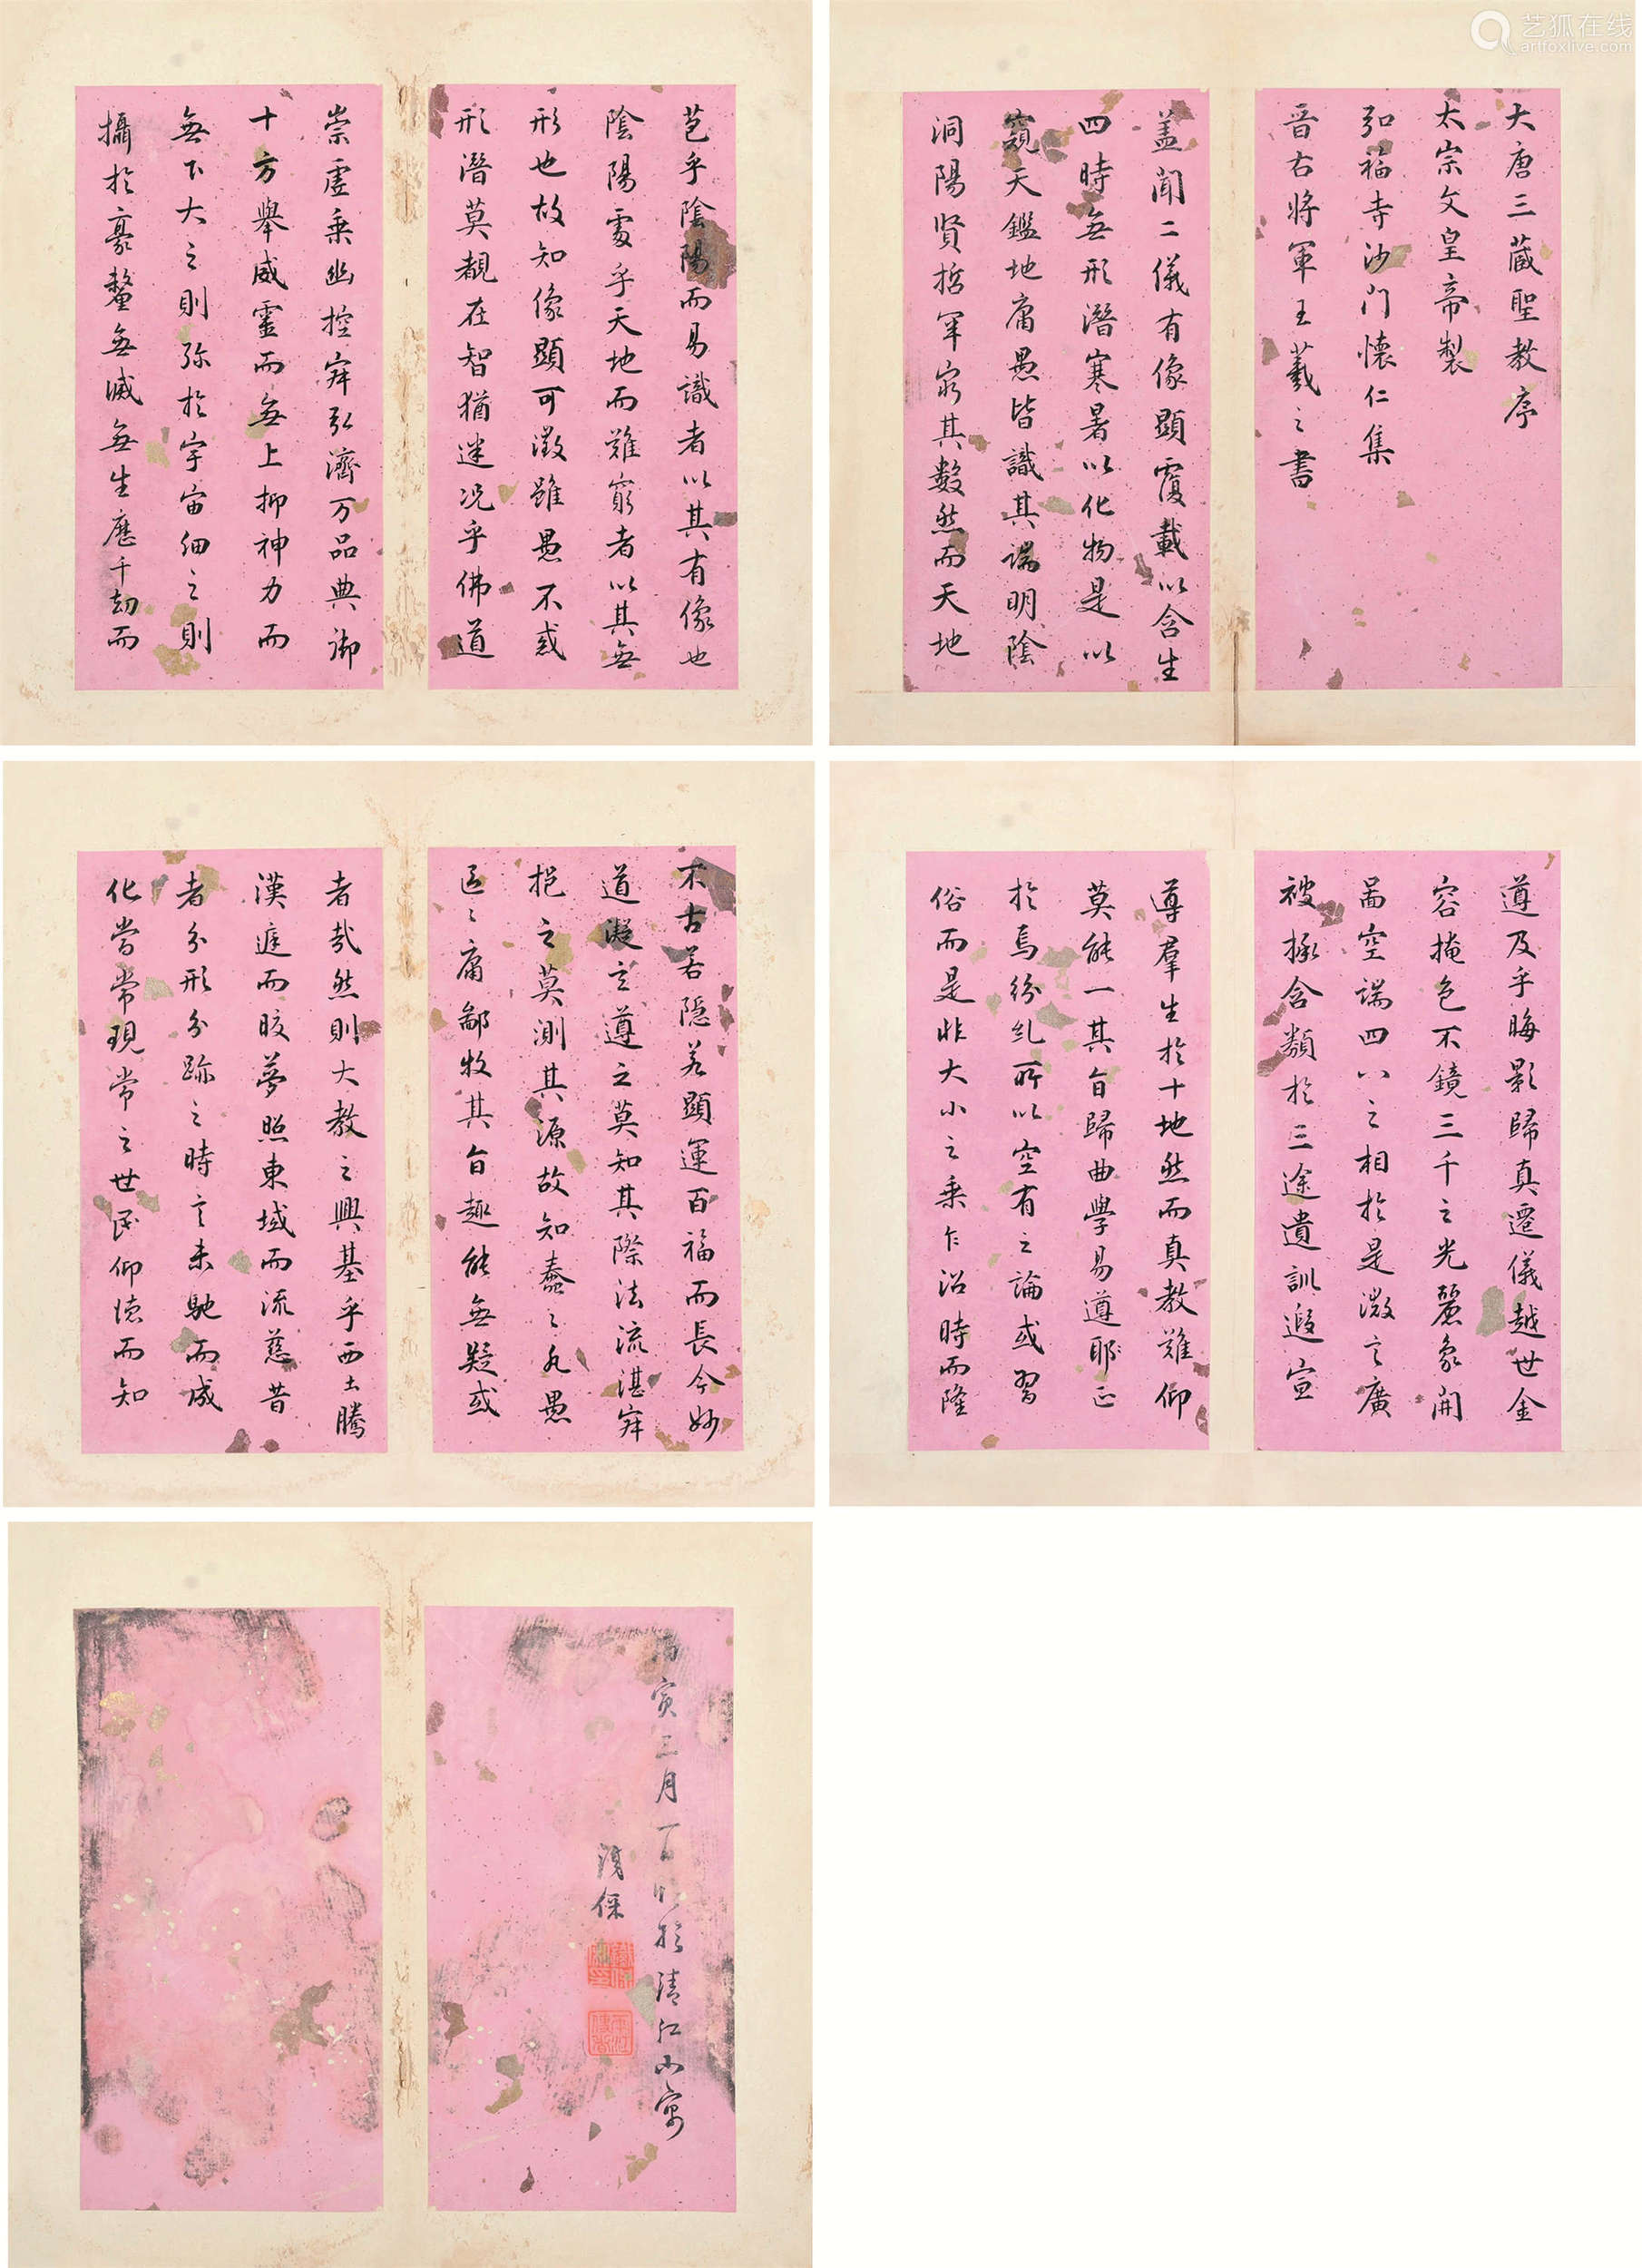 大唐三蔵聖教序
太宗文皇帝製
弘福寺沙门懐仁集
晋右将軍王羲之書
盖闻二儀有像顕覆載以含生
四時無形潜寒暑以化物是以
窺天鑑地庸愚皆識其端明陰
洞陽賢哲罕窮其數然而天地
苞乎陰陽而易識者以其有像也
陰陽處乎天地而難窮者以其無
形也故知像顕可徴雖愚不惑
形潜莫覩在智猶迷况乎佛道
崇虚乗幽控寂弘濟万品典御
十方舉威靈而無上抑神力而
無下大之則弥於宇宙細之則
攝於豪釐無滅無生歴千劫而
不古若隠若顕運百福而長今妙
道凝玄遵之莫知其際法流湛寂
挹之莫測其源故知蠢ミ凡愚
區ミ庸鄙投其旨趣能無疑或
者哉然則大教之興基乎西土騰
漢庭而皎夢照東域而流慈昔
者分形分跡之時言未馳而成
化當常現常之世民仰徳而知
遵及乎晦影歸真遷儀越世金
容掩色不鏡三千之光麗象開
啚空端四八之相於是微言廣
被拯含類於三途遺訓遐宣
導羣生於十地然而真教難仰
莫能一其旨歸曲學易遵耶正
於焉紛糺所以空有之論或習
俗而是非大小之乗乍沿時而隆
丙寅三月
於清江小寓
鐵保
艺狐在线
artfoxlive.com